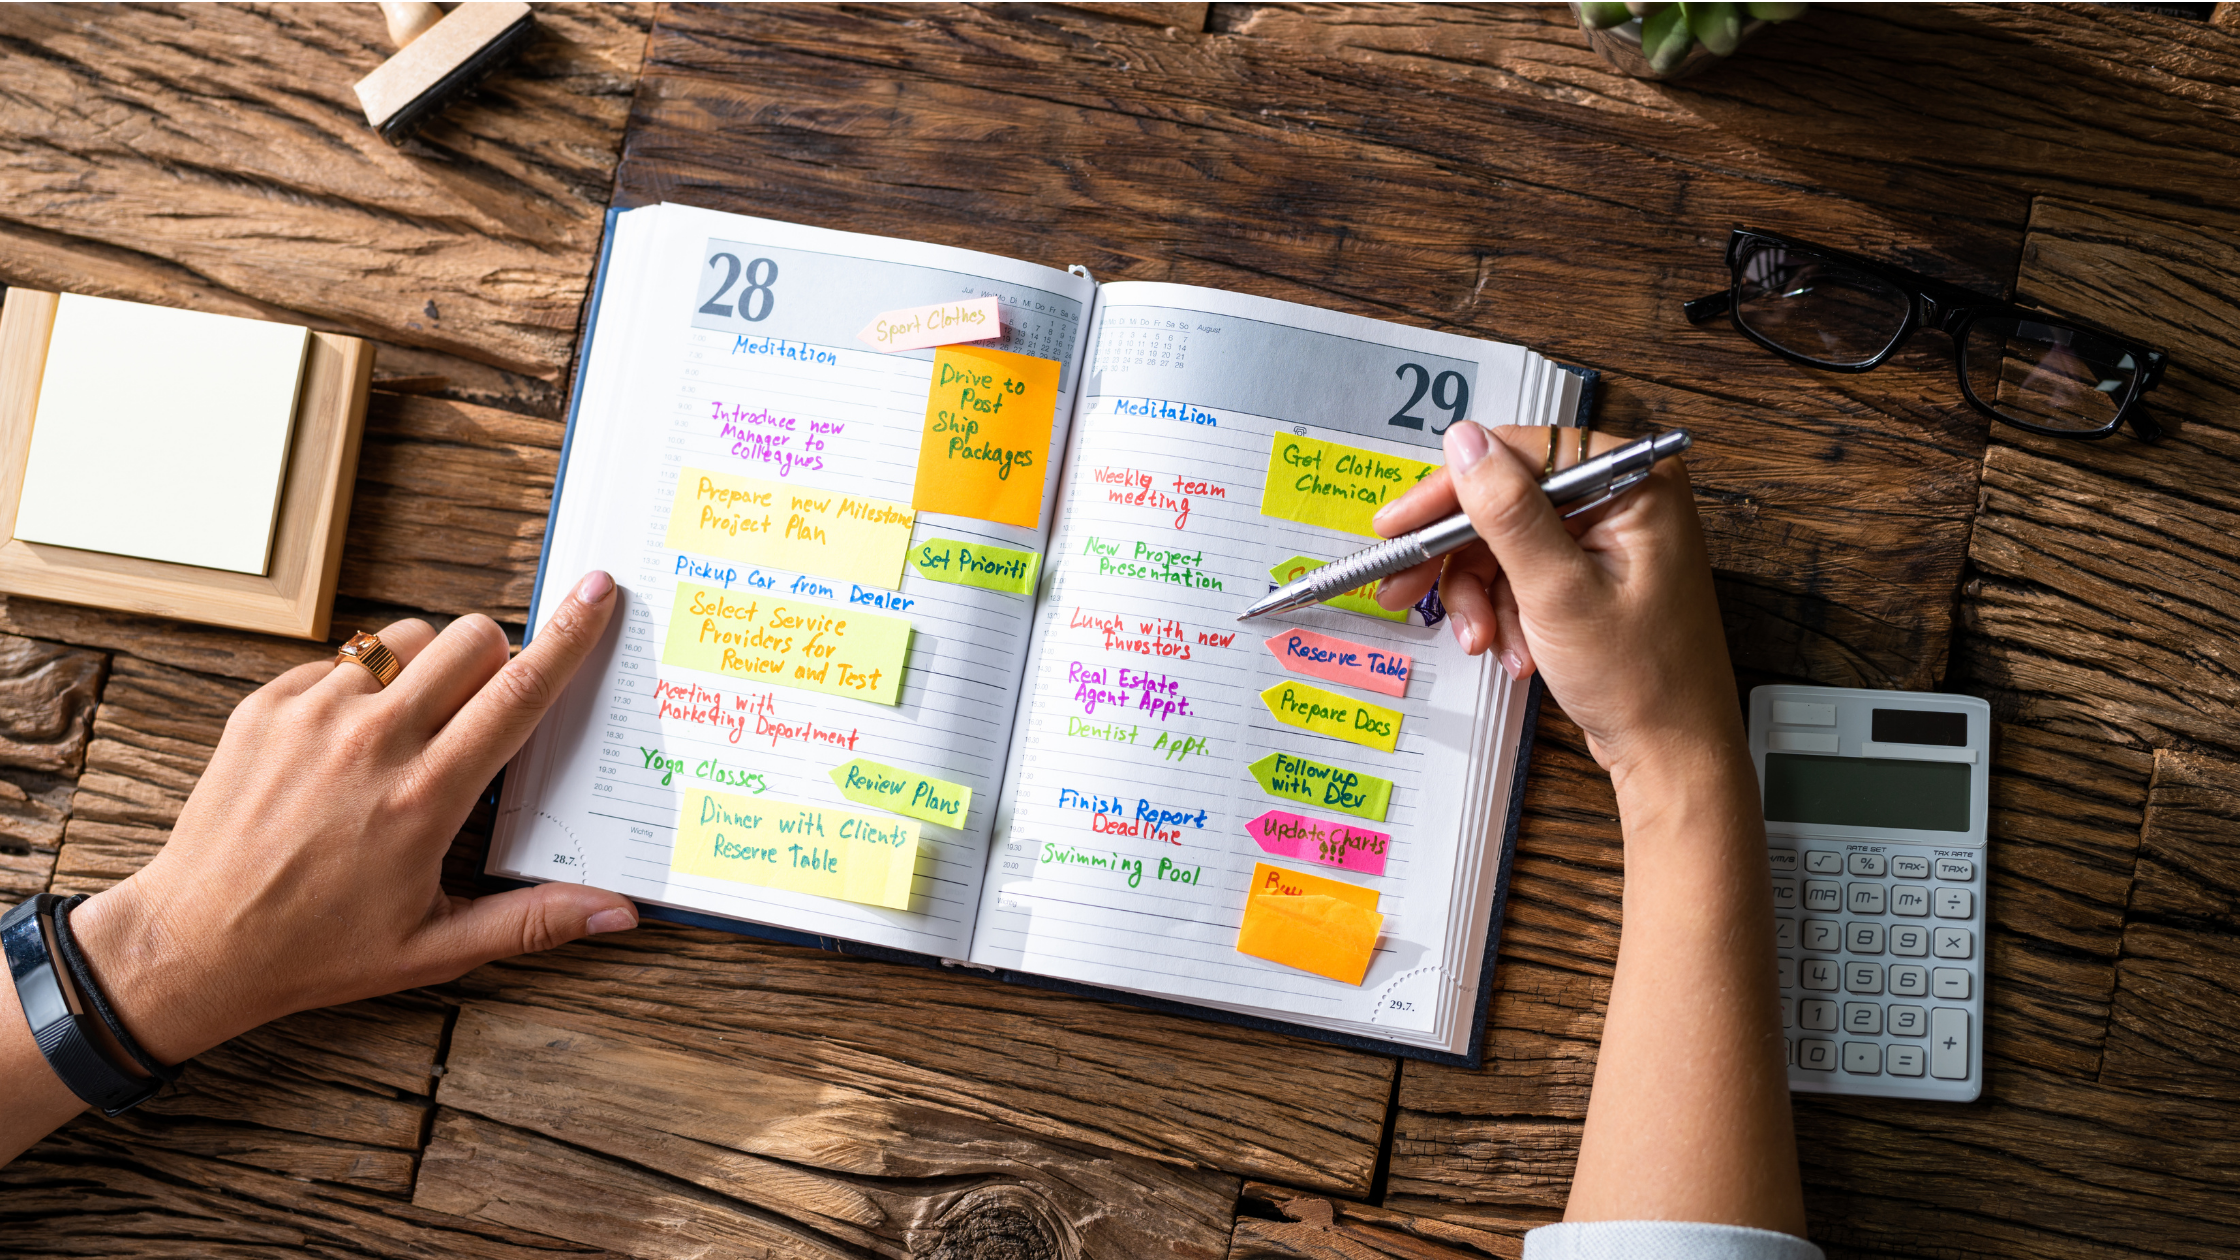 28
Jul
Mo Di Mi Do Fr Sa So
Sport Clothes
Meditation
Drive to
Post
Ship
Packages
Introduce new
Manager to
Colleagues
Prepare new Milestone
Project Plan
Set Prioriti
Pickup Car from Dealer
Select Service
Providers for
Review and Test
Meeting with
Marketing Department
Yoga Classes
Review Plans
Dinner with Clients
Reserve Table
15.00
15.30
16.00
16.30
17.00
17.30
18.00
18.30
19.00
19.30
20.00
Wichtig
28.7.
Mo Di Mi Do Fr Sa So
August
29
Meditation
Get Clothes f
Chemical
Weekly team
meeting
New Project
Presentation
Lunch with new
Investors
Reserve Table
Real Estate
Agent Appt.
Prepare Docs
Dentist Appt.
Followup
with Dev
Finish Report
Deadline
Update Charts
!!!
Swimming Pool
Buy
Wichtig
29.7.
RATE SET
TAX RATE
√ % TAX- TAX+
MR M- M+ ÷
7 8 9 ×
4 5 6 −
1 2 3 +
0 . =